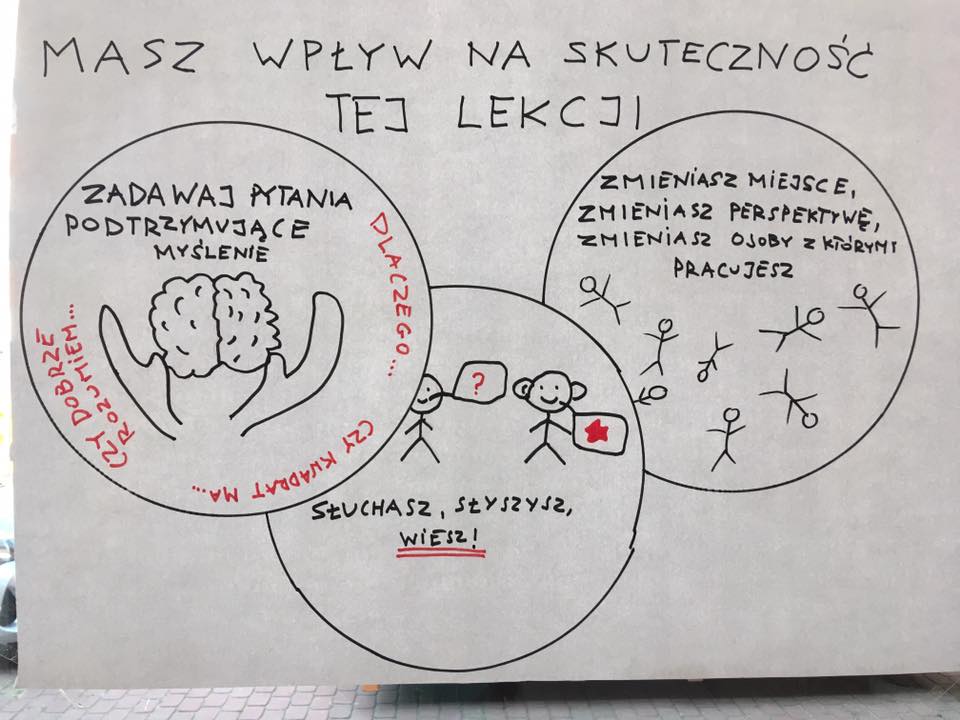 MASZ WPŁYW NA SKUTECZNOŚĆ
TEJ LEKCJI
ZADAWAJ PYTANIA
PODTRZYMUJĄCE
MYŚLENIE
DLACZEGO...
CZY DOBRZE
ROZUMIEM...
CZY KWADRAT MA...
?
SŁUCHASZ, SŁYSZYSZ,
WIESZ!
ZMIENIASZ MIEJSCE,
ZMIENIASZ PERSPEKTYWĘ,
ZMIENIASZ OSOBY Z KTÓRYMI
PRACUJESZ